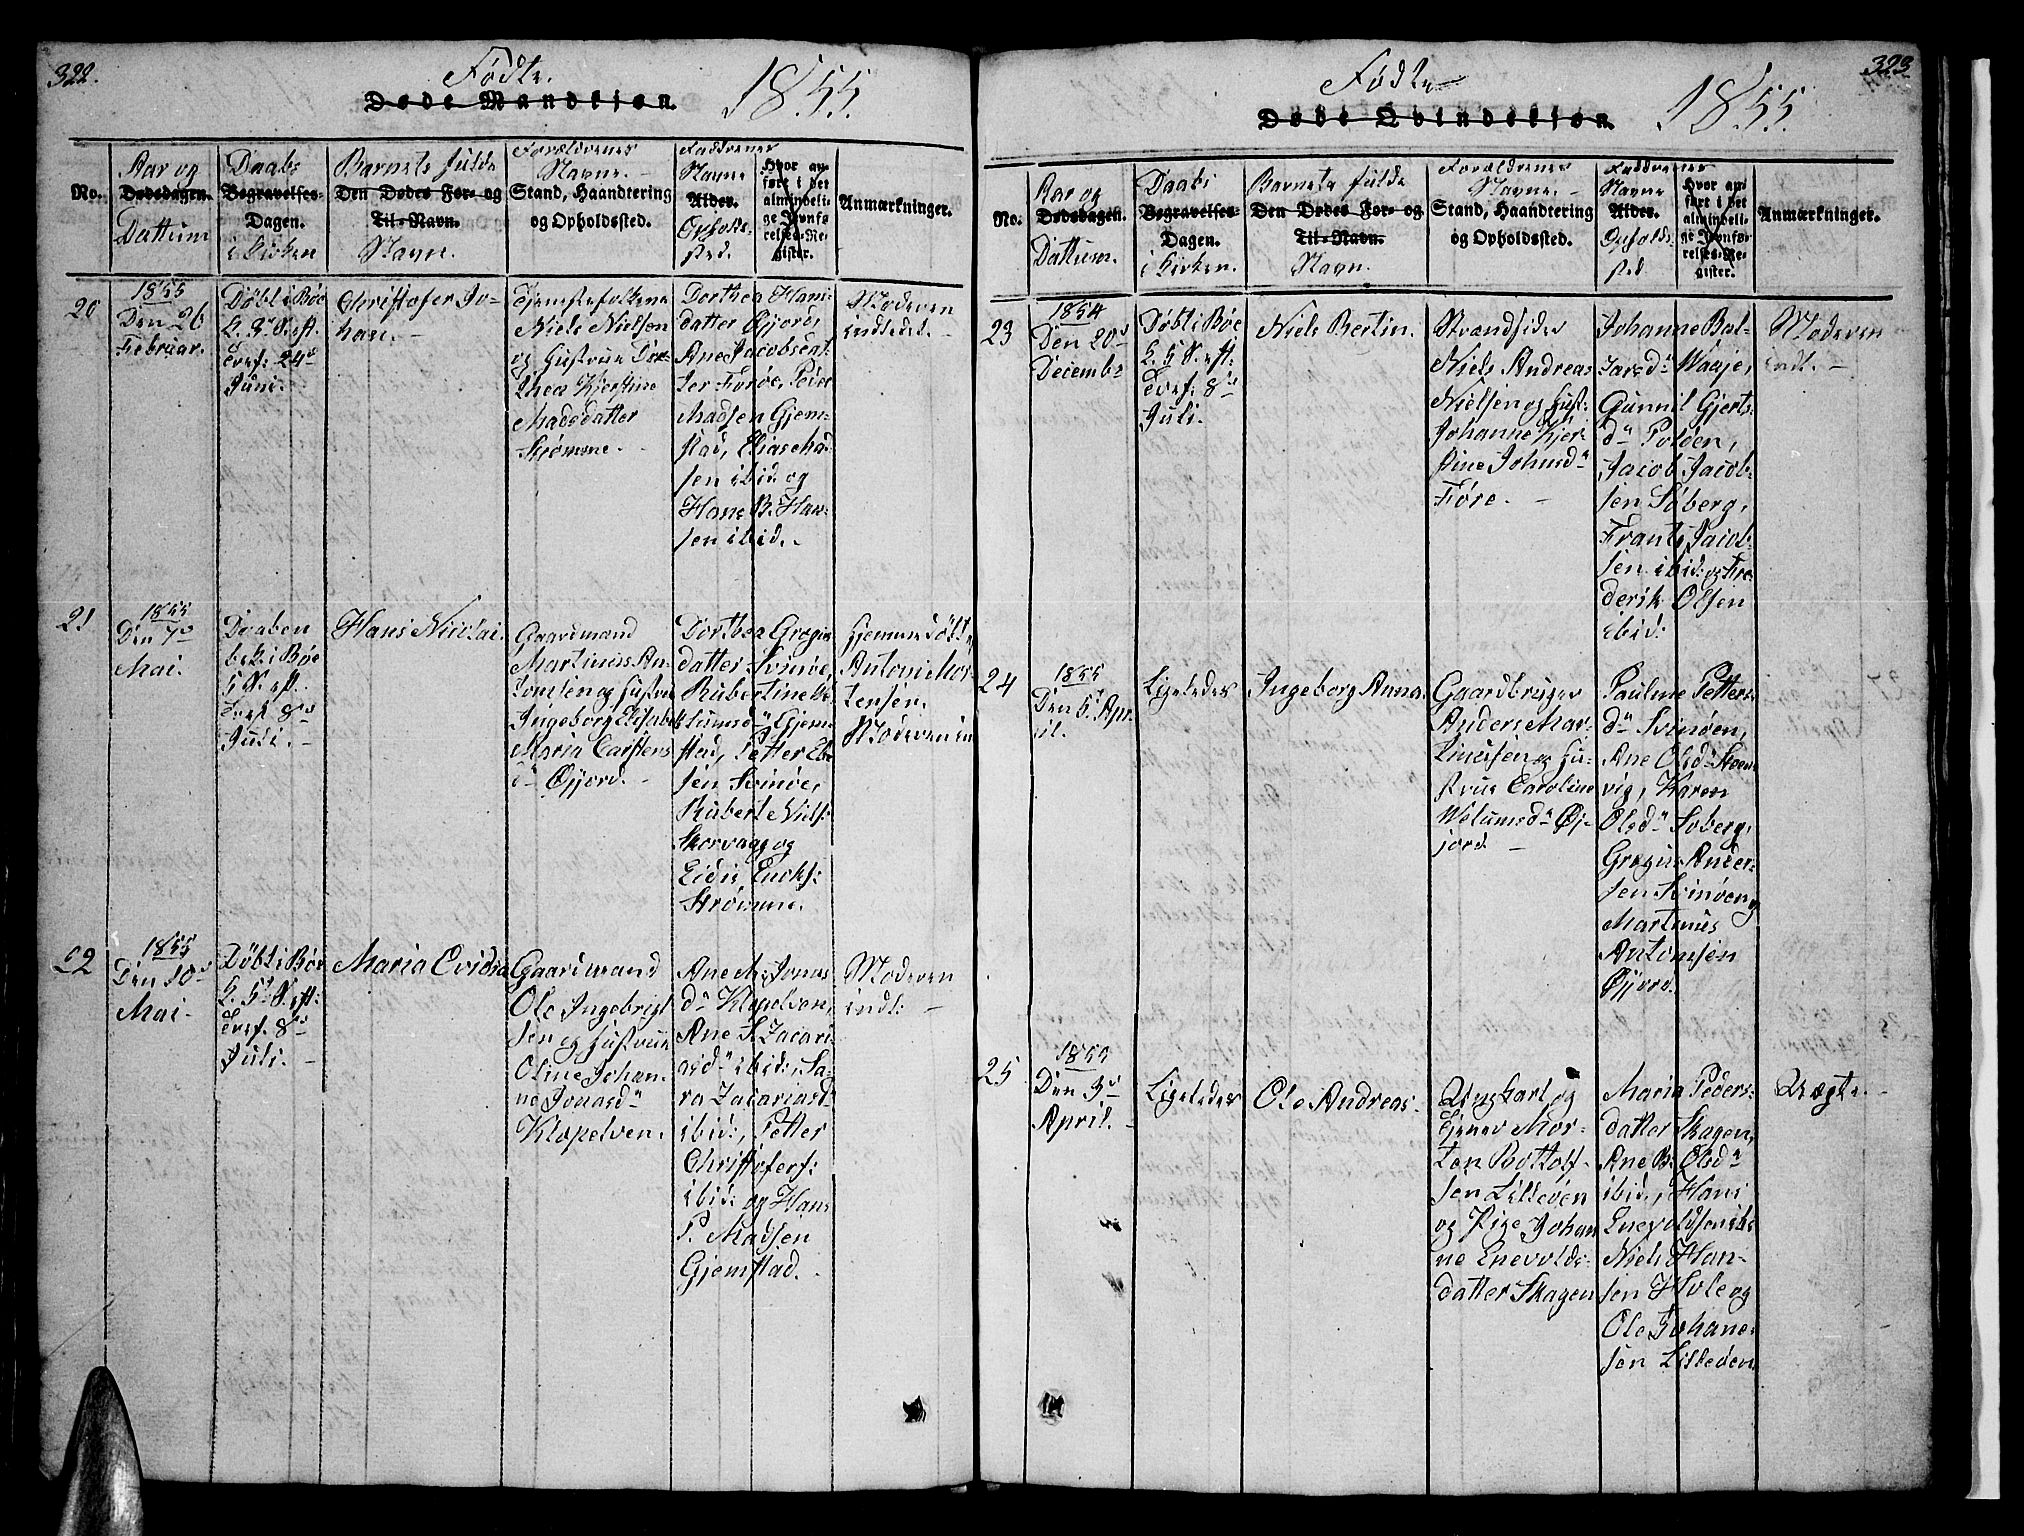 322.
Fødte.
Døde Mandkiøn.
1855.
No.
Aar og
Dødsdagen.
Dattum
Daabs
Begravelses-
Dagen.
i Kirken
Barnets fulde
Den Dødes For- og
Til-Navn.
Navn.
Forældrenes
Navne.
Stand, Haandtering
og Opholdssted.
Faddrenes
Navne
Alder.
Opholds-
sted.
Hvor an-
ført i det
almindeli-
ge Jevnfø-
relses-Re-
gister.
Anmærkninger.
20
1855
Den 26
Februar.
Døbt i Bøe
S. Eft.
24de
Juni.
Christofer Jo-
han.
Tjenestefolkene
Niels Nielsen
og Hustrue Do-
thea Kjerstine
Madsdatter
Strømme.
Dorthea Hans-
datter Øjord,
Ane Jacobsdat-
ter Forøe, Peder
Madsen Gjem-
stad, Elias Mad-
sen ibid og
Hans B. Han-
sen ibid.
Moderen
indledet.
21
1855
Den 7de
Mai.
Daaben
bek. i Bøe
5 S. eft.
8de
Juli.
Hans Nicolai.
Gaardmand
Martinus An-
tonsen og Hustrue
Ingeborg Elisab.
Maria Carstens
dr Øjord.
Dorthea Gregus
datter Svinøe,
Rubertine
Gjem-
stad, Petter Eb-
sen Svinøe,
Rubert Niels:
Skorvaag og
Eidis Enoks:
Strømme.
Hjemmedøbt
Antoni Mor-
tensen.
Moderen in
22
1855
Den 10de
Mai.
Døbt i Bøe
S. 5te S. eft:
8de
Juli.
Maria Evidia
Gaardmand
Ole Ingebrigt
sen og Hustrue
Oline Johan-
ne Jonasdr
Klopelven.
Ane M. Jonas
dr Klopelven,
Ane S. Zacari
asdr ibid, Sa-
ra Zacariasd.
ibid, Petter
Christofers:
ibid: og Hans
P. Madsen
Gjemstad.
Moderen
indl:
323
Fødte
Døde Qvindekiøn.
1855.
No.
Aar og
Dødsdagen.
Dattum.
Daabs
Begravelses-
Dagen.
i Kirken.
Barnets fulde
Den Dødes For- og
Til-Navn.
Navn.
Forældrenes
Navne.
Stand, Haandtering
og Opholdssted.
Faddrenes
Navne
Alder.
Opholds-
sted
Hvor an-
ført i det
almindeli-
ge Jevnfø-
relses-Re-
gister.
Anmærkninger.
23
1854
Den 20de
Decembr
Døbt i Bøe
S. 5 S. eft:
8de
Juli.
Niels Bertin.
Strandsider
Niels Andreas
Nielsen og Hust:
Johanne Kjer-
stine Johnsdr
Føre.
Johanne Bal-
tzarsdr Waaje,
Gunnil Gjerts-
dr Poløen,
Jacob Jacob-
sen Søberg,
Frants Jacob-
sen ibid: og Fre-
derik Olsen
ibid:
Moderen
indl.
24
1855
Den 5te Ap-
ril.
Ligeledes
Ingeborg Anna.
Gaardbruger
Anders Mar-
tinussen og Hu-
strue Caroline
Wolumsdr Øj-
jord.
Pauline Petters-
dr Svinøen,
Ane Olsdr Steen-
vig, Karen
Olsdr Søberg,
Gregus Ander-
sen Svinøen og
Martinus
Antonsen
Øjord.
25
1855
Den 3de
April.
Ligeledes
Ole Andreas.
Ungkarl og
Tjener Mor-
ten Bottolf-
sen Lilleøen
og Pige Johan
ne Enevolds-
datter Skagen
Maria Peders-
datter Skagen,
Ane B. Olsdr
ibid, Hans
Enevoldsen ib:
Niels Han-
sen Hole og
Ole Johane-
sen Lilleøen
Uægte.